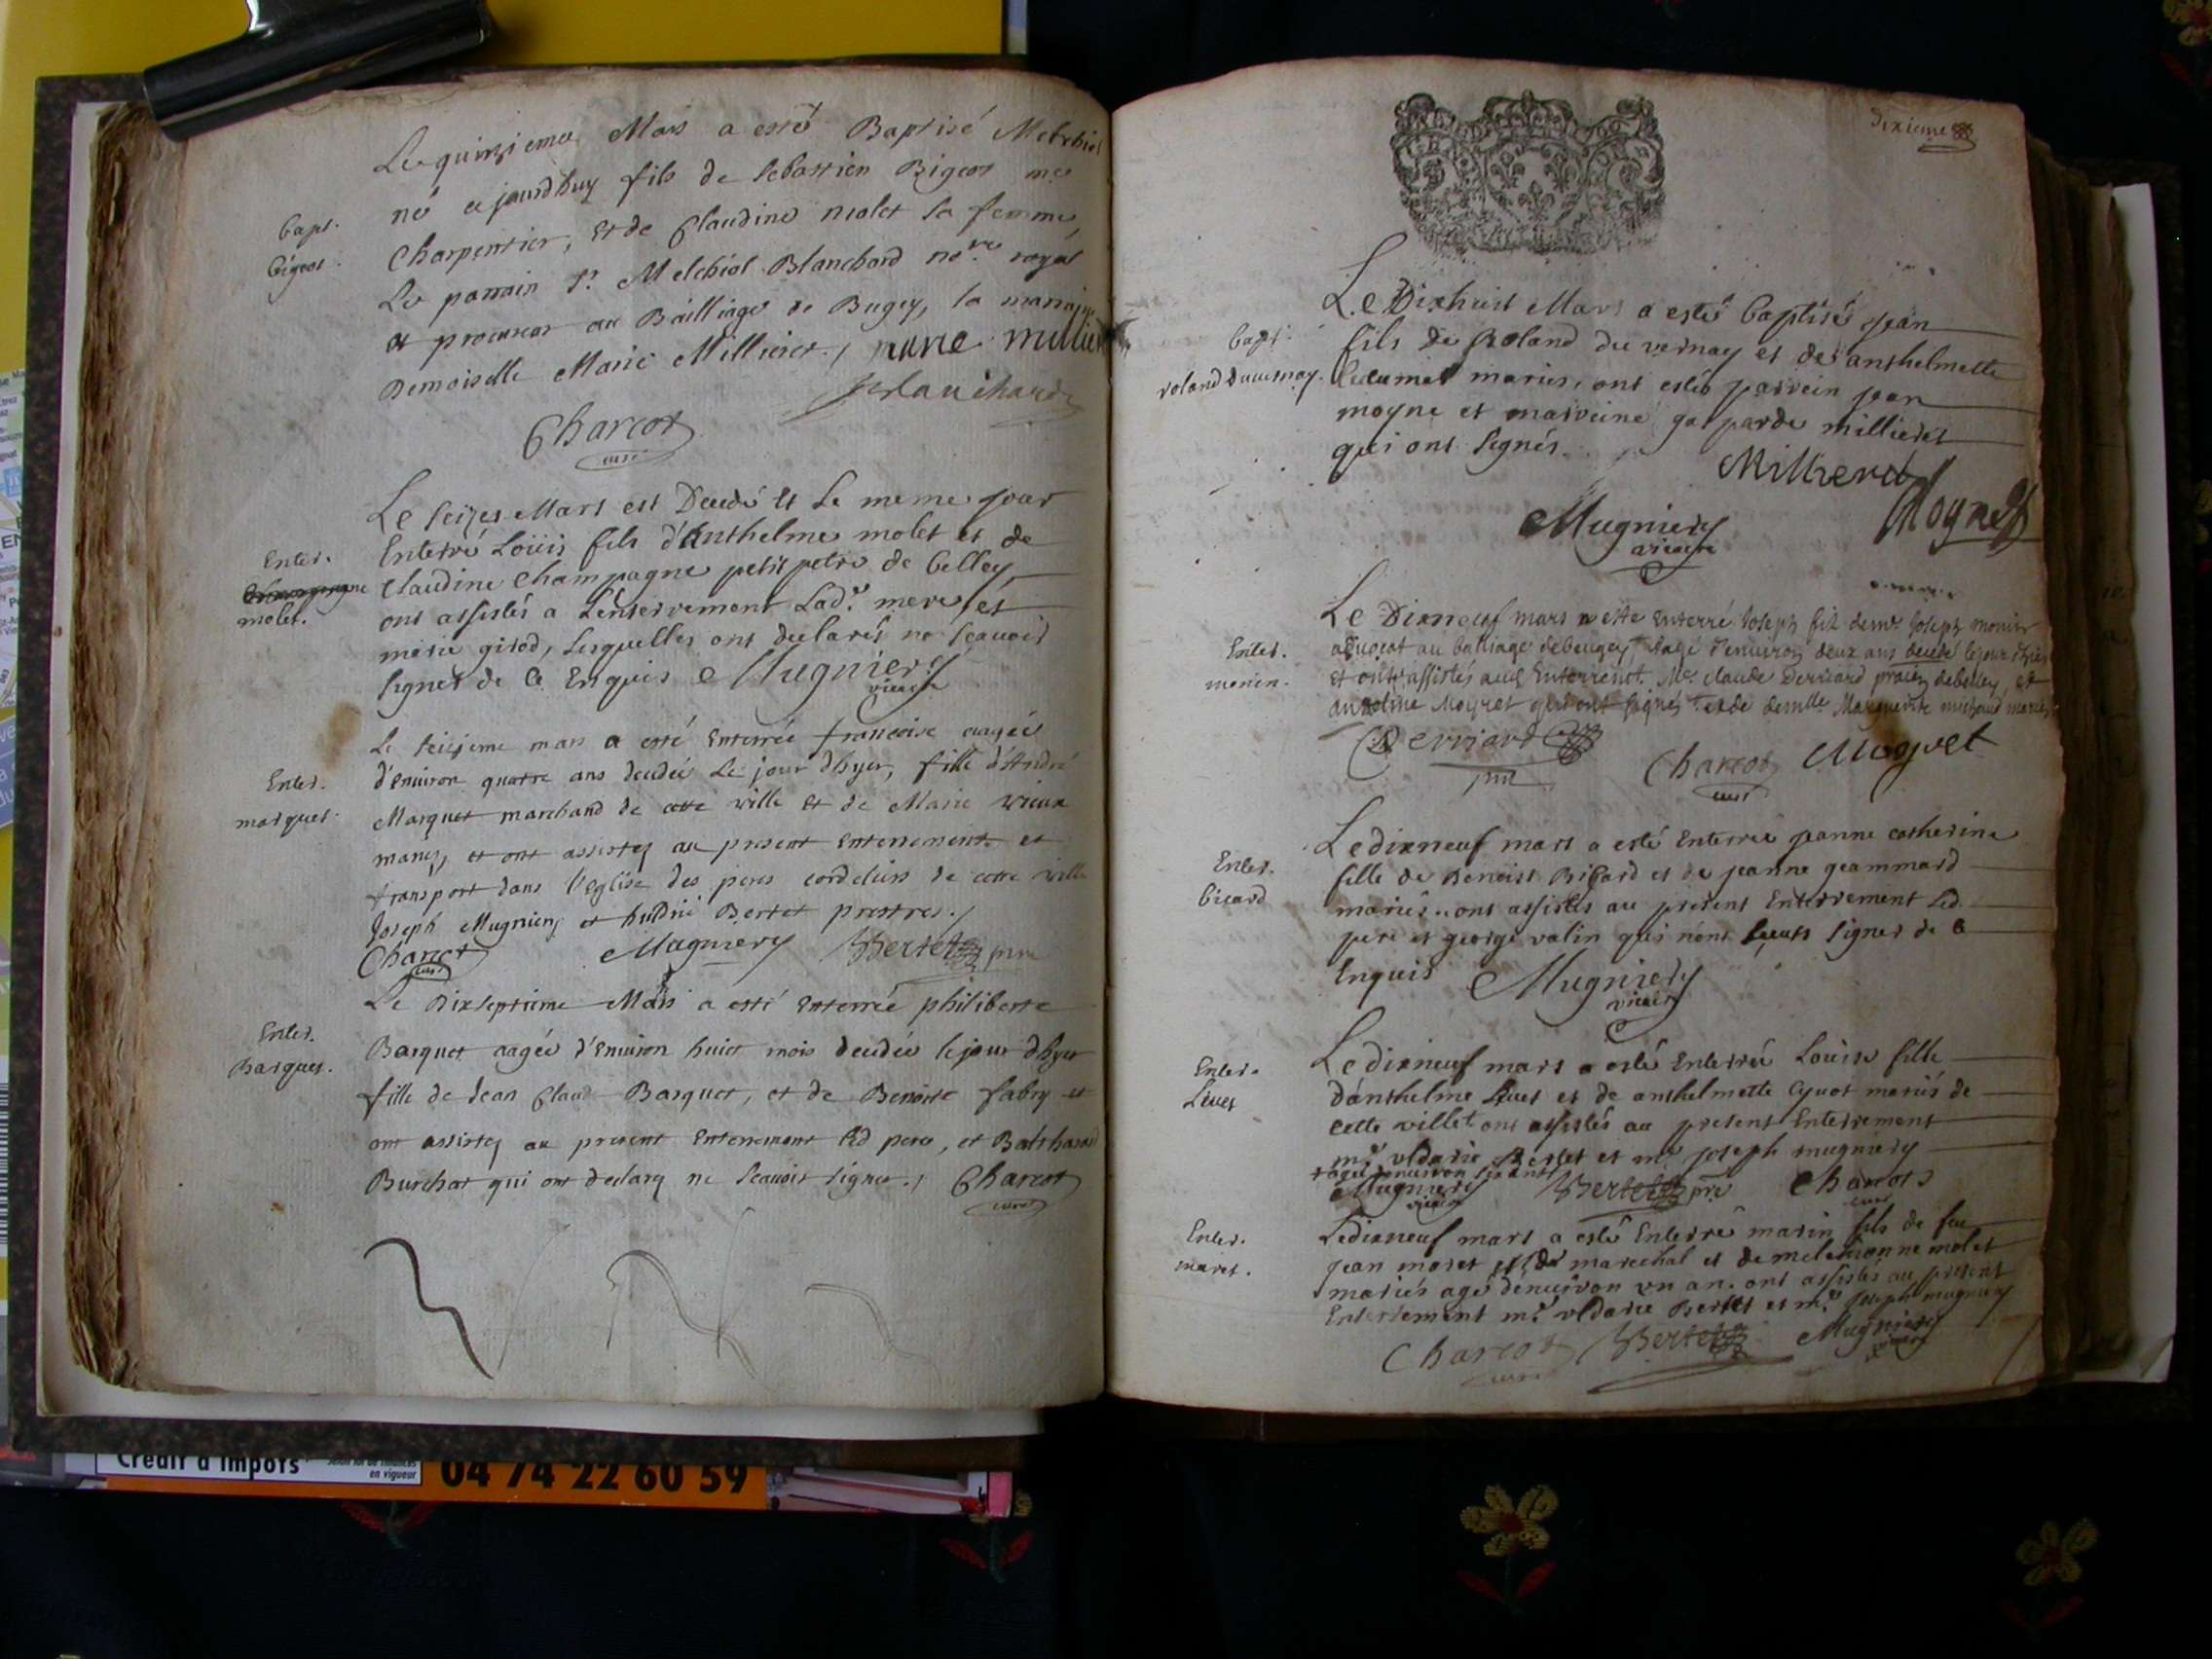 Le quinzieme Mars a esté Baptisé Melchiol
né cejourdhuy fils de Sebastien Bigeot me
Charpentier, Et de Claudine molet sa femme,
Le parrain Sr. Melchiol Blanchard nore. royal
et procureur au Bailliage de Bugey, la marraine
Demoiselle Marie Millieret.
Bapt.
Bigeot.
Blanchard
Charcot
curé
Le seizes Mars est Decedé Et Le meme jour
Enterré Loüis fils d'Anthelme molet et de
Claudine Champagne de belley
ont assistés a L'enterrement Lad.e mere, et
marie girod, Lesquelles ont declarés ne Scauoir
signer de ce Enquis Mugniery
vicaire
Enter.
molet.
Le seizieme mars a esté Enterrée francoise aagée
d'enuiron quatre ans decedée Le jour d'hyer, fille d'André
Marquet marchand de cette ville et de Marie vieux
mariez, et ont assistez au present Enterrement et
transport dans l'Eglise des peres cordeliers de cette ville
Joseph Mugniery et Bertet prestres.
Enter.
marquet.
Charcot Mugniery Bertet
curé
Le Dixseptieme Mars a esté Enterrée philiberte
Barquet aagée d'Enuiron huict mois decedée le jour d'hyer
fille de Jean Claude Barquet, et de Benoite fabry et
ont assistez au present Enterrement Led pere, et Balthasard
Burchat qui ont declarez ne Scauoir signer. Charcot
curé
Enter.
Barquet.
Dixieme
Le Dixhuit Mars a estté baptisé Jean
fils de Roland du vernay et de anthelmette
mariés, ont estés parrein jean
moyne et marreine gasparde millieret
qui ont signés.
Bapt.
roland duuernay.
Millieret
Mugniery
vicaire
Le Dixneuf mars a este enterré Joseph filz de mr. Joseph monier
aduocat au balliage de beugey, aagé d'enuiron deux ans decedé le jour d'hier
et ont assistés Mr. claude Derriard de belley, et
anthelme Moyret qui ont signés et de demlle. Marguerite michaud mariés
Enter.
monier.
Derriard
Charcot
curé
Le dixneuf mars a esté Enterrée jeanne catherine
fille de Benoist Bicard et de jeanne geammard
mariés. ont assistés au present Enterrement Led.
pere et george valin qui n'ont sceuts signer de ce
Enquis Mugniery
vicaire
Enter.
bicard
Le dixneuf mars a esté Enterrée Louise fille
d'anthelme Livet et de anthelmette Cynot mariés de
cette ville ont assistés au present Enterrement
mr. vldaric Bertet et mr. joseph mugniery
Enter.
Livet
Mugniery Bertet pre Charcot
vicaire curé
Le dixneuf mars a esté Enterré marin fils de feu
jean moret marechal et de melchionne molet
mariés agé d'enuiron vn an. ont assistés au present
Enterrement mr. vldaric Bertet et mr. Joseph mugniery
Enter.
moret.
Charcot Bertet Mugniery
curé vicaire
Crédit d'impôts
en vigueur
04 74 22 60 59